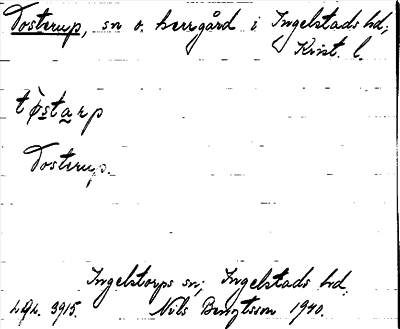 Tosterup, sn o. herrgård i Ingelstads hd,
Krist. l.
tòstarp
Tosterup.
Ingelstorps sn; Ingelstads hd.
LAL. 3915. Nils Bengtsson 1940.